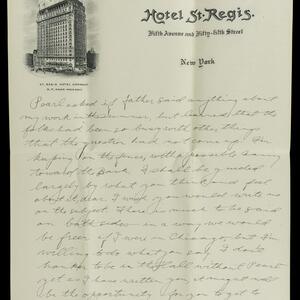 Hotel St. Regis.
Fifth Avenue and Fifty-fifth Street
New York
ST. REGIS HOTEL COMPANY
Pearl asked if father said anything about
my work in the summer, but learned that the
folks had been so busy with other things
that the question had not come up. I'm
keeping on the fence, with a possible leaning
toward the Bank. I shall be guided
largely by what you think and feel
about it, dear. I wish you would write me
on the subject. There is much to be said
on both sides - in a way we would
be freer if I were in Chicago, but I'm
willing to do what you say. I don't
to be in the fall without Pearl
yet as I have written you
be the opportunity for you to get to